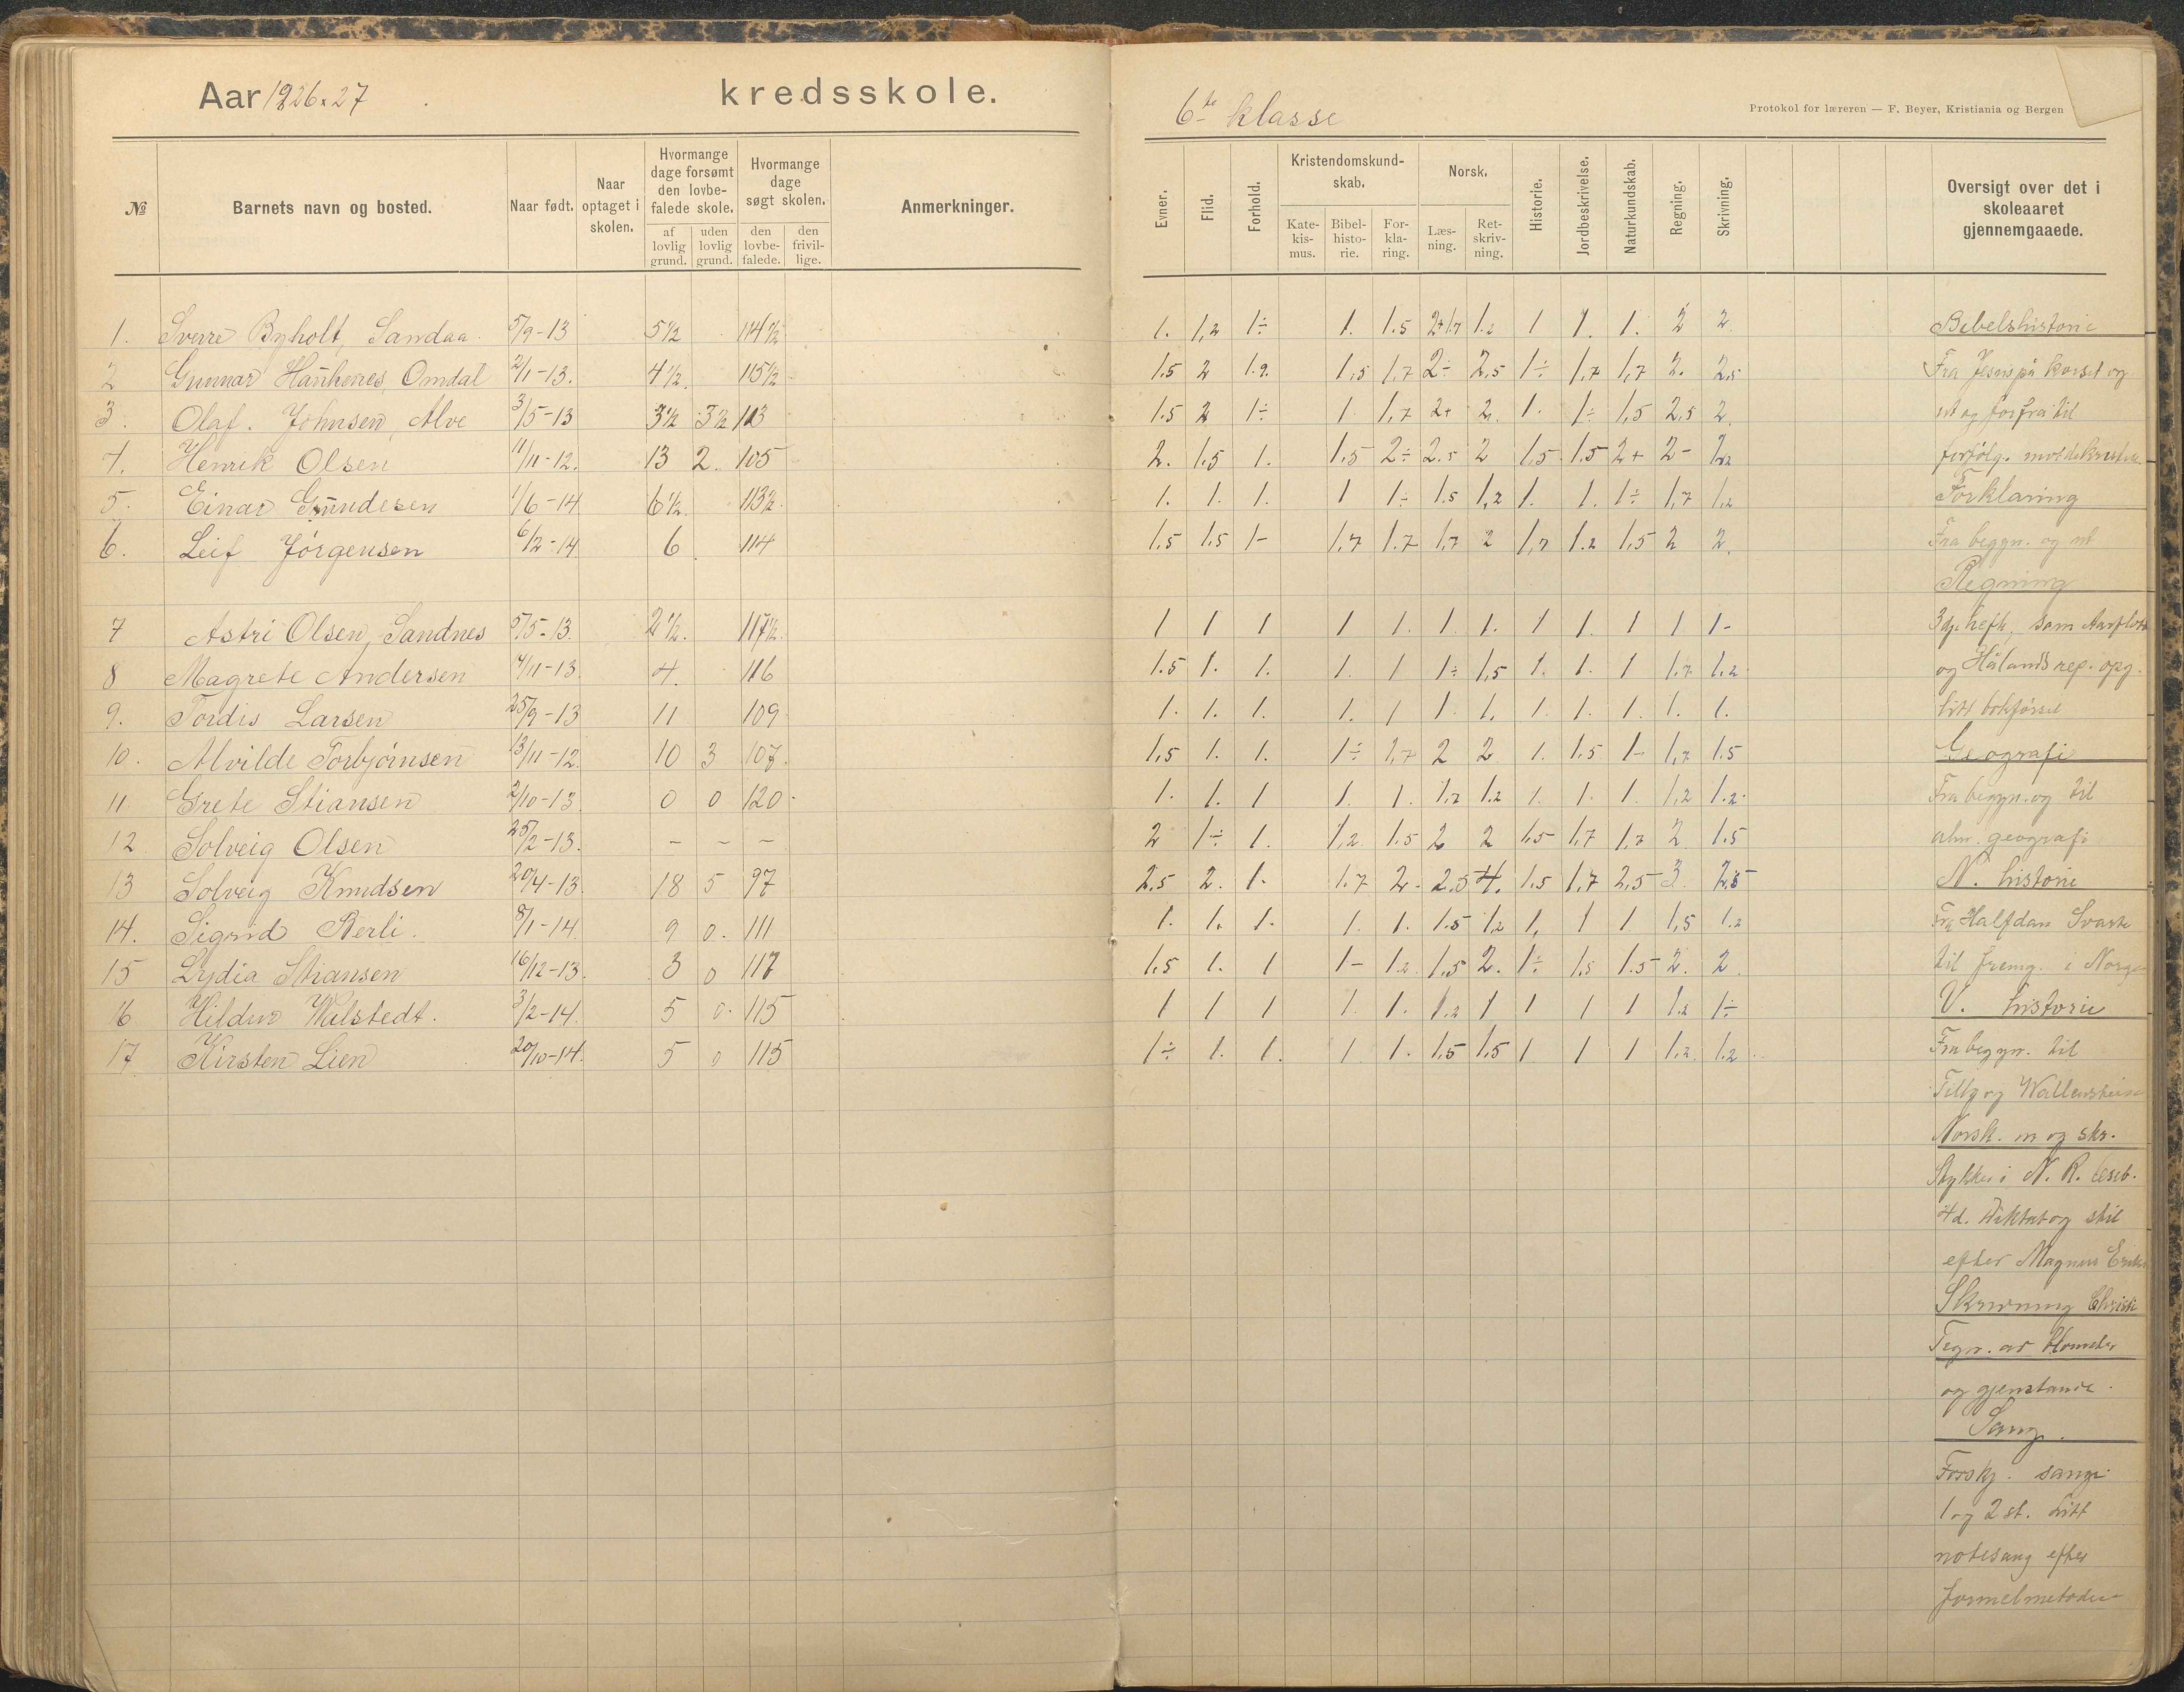 Aar 1926-27 kredsskole.
6te klasse
Protokol for læreren — F. Beyer, Kristiania og Bergen
№ Barnets navn og bosted. Naar født. Naar optaget i skolen. Hvormange dage forsømt den lovbefalede skole. af lovlig grund. uden lovlig grund. Hvormange dage søgt skolen. den lovbefalede. den frivillige. Anmerkninger.
Evner. Flid. Forhold. Kristendomskundskab. Katekismus. Bibelhistorie. Forklaring. Norsk. Læsning. Retskrivning. Historie. Jordbeskrivelse. Naturkundskab. Regning. Skrivning. Oversigt over det i skoleaaret gjennemgaaede.
1. Sverre Byholt, Sandaa. 5/9-13 5½ 114½ 1. 1,2 1÷ 1. 1.5 2+1.7 1.2 1 1. 1. 2 2. Bibelshistorie
2 Gunnar Hankenes, Omdal 2/11-13. 4½. 115½ 1.5 2 1.2. 1,5 1,7 2÷ 2,5 1÷ 1,7 1,7 2. 2.5 Fra Jesus på korset og
3. Olaf. Johnsen, Alve 3/5-13 3½ 3½ 113 1.5 2 1÷ 1 1,7 2+ 2. 1. 1÷ 1,5 2,5 2. ut og forfra til
4. Henrik Olsen 11/11-12. 13 2. 105 2. 1.5 1. 1.5 2÷ 2.5 2 1.5 1.5 2+ 2- forfølg. mot de kristne
5. Einar Gundesen 1/6-14 6½. 113½. 1. 1. 1. 1 1÷ 1.5 1,2 1. 1. 1÷ 1,7 1,2 Forklaring
6. Leif Jørgensen 6/2-14 6 114 1.5 1.5 1- 1.7 1.7 1,7 2 1,7 1.2 1.5 2 2. Fra begyn. og ut
Regning
7 Astri Olsen, Sandnes 5/5-13. 2½. 117½. 1 1 1 1 1. 1. 1. 1 1. 1 1 1- 3dje hefte, som
8 Magrete Andersen 4/11-13. 4. 116 1.5 1. 1. 1. 1 1÷ 1,5 1. 1. 1 1.7 1.2 og Hålands rep. opg.
9. Tordis Larsen 25/9-13 11 109 1. 1. 1. 1. 1 1 1. 1 1. 1. 1. 1. litt bokførsel
10. Alvilde Torbjørnsen 13/11-12. 10 3 107. 1,5 1. 1. 1÷ 1,7 2 2 1. 1.5 1- 1,7 1.5 Geografi
11. Grete Stiansen 2/10-13. 0 0 120 1. 1. 1 1. 1. 1.2 1.2 1. 1. 1. 1,2 1.2 Fra begyn. og til
12. Solveig Olsen 25/2-13. – – – 2 1÷ 1. 1,2. 1.5 2 2 1.5 1,7 1,7 2 1.5 alm. geografi
13 Solveig Knudsen 20/4-13. 18 5 97 2.5 2. 1. 1.7 2- 2.5 4. 1.5 1,7 2,5 3. 2,5 N. historie
14. Sigrid Berli. 8/1-14. 9 0. 111 1. 1. 1. 1. 1. 1.5 1,2 1, 1 1 1,5 1.2 Fra Halfdan Svarte
15 Lydia Stiansen 16/12-13. 3 0 117 1.5 1. 1 1- 1.2 1,5 2. 1÷ 1,5 1.5 2. 2 til fremg. i Norge
16 Hildur Walstedt. 3/2-14. 5 0. 115 1 1 1 1. 1. 1.2 1 1 1 1 1.2 1÷ V. historie
17 Kirsten Lien 20/10-14. 5 0 115 1÷ 1. 1. 1. 1. 1.5 1.5 1 1 1 1.2. 1.2 Fra begyn. til
Tilly og Wallenstein
Norsk. m og skr.
Stykker i N. R. leseb.
4d. Diktat og stil
efter Magnus
Skrivning
Tegn. av blomster
og gjenstande.
Sang.
Forskj. sange
1 og 2 st. Litt
notesang efter
formelmetoden